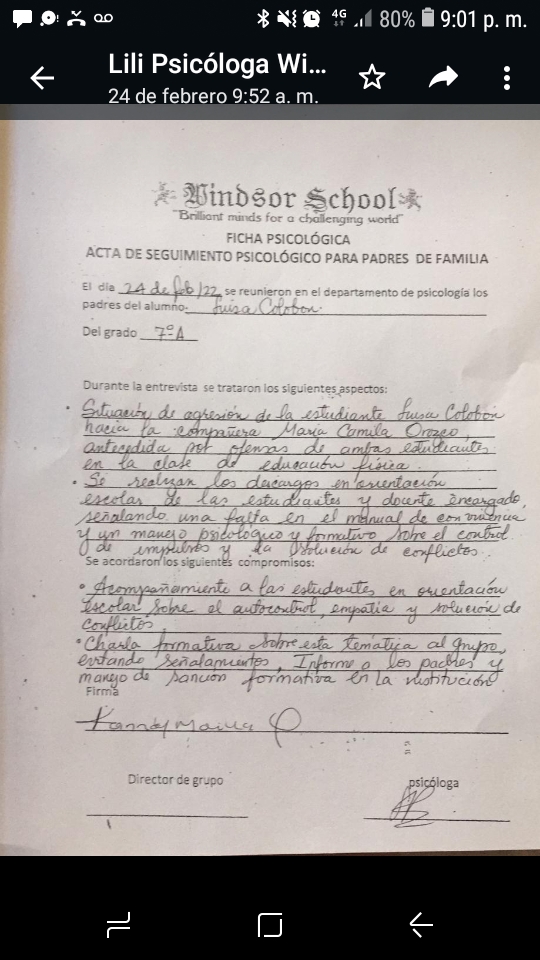 4G 80% 9:01 p. m.
Lili Psicóloga Wi...
24 de febrero 9:52 a. m.
Windsor School
"Brilliant minds for a challenging world"
FICHA PSICOLÓGICA
ACTA DE SEGUIMIENTO PSICOLÓGICO PARA PADRES DE FAMILIA
El día 24 de feb/22 se reunieron en el departamento de psicología los
padres del alumno: Luisa Colobon.
Del grado 7º-A
Durante la entrevista se trataron los siguientes aspectos:
• Situación de agresión de la estudiante Luisa Colobon
hacia la compañera Maria Camila Orozco,
antecedida por ofensas de ambas estudiantes
en la clase de educación física.
• Se realizan los descargos en orientación
escolar de las estudiantes y docente encargado,
señalando una falta en el manual de convivencia
y un manejo psicológico y formativo sobre el control
de impulsos y la solución de conflictos.
Se acordaron los siguientes compromisos:
• Acompañamiento a las estudiantes en orientación
escolar sobre el autocontrol, empatia y solución de
conflictos
• Charla formativa sobre esta temática al grupo,
evitando señalamientos, Informe a los padres y
manejo de sanción formativa en la institución
Firma
Director de grupo psicóloga